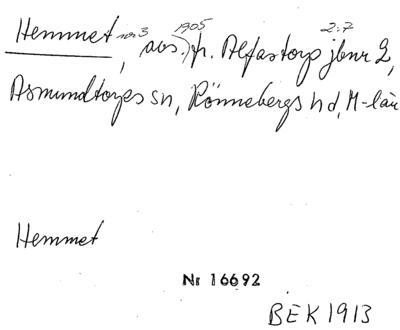 Hemmet nr 3, avs. 1905 fr. Alfastorp jbnr 2, 2:7
Asmundtorps sn, Rönnebergs hd, M-län
Hemmet
Nr 16692
BEK 1913